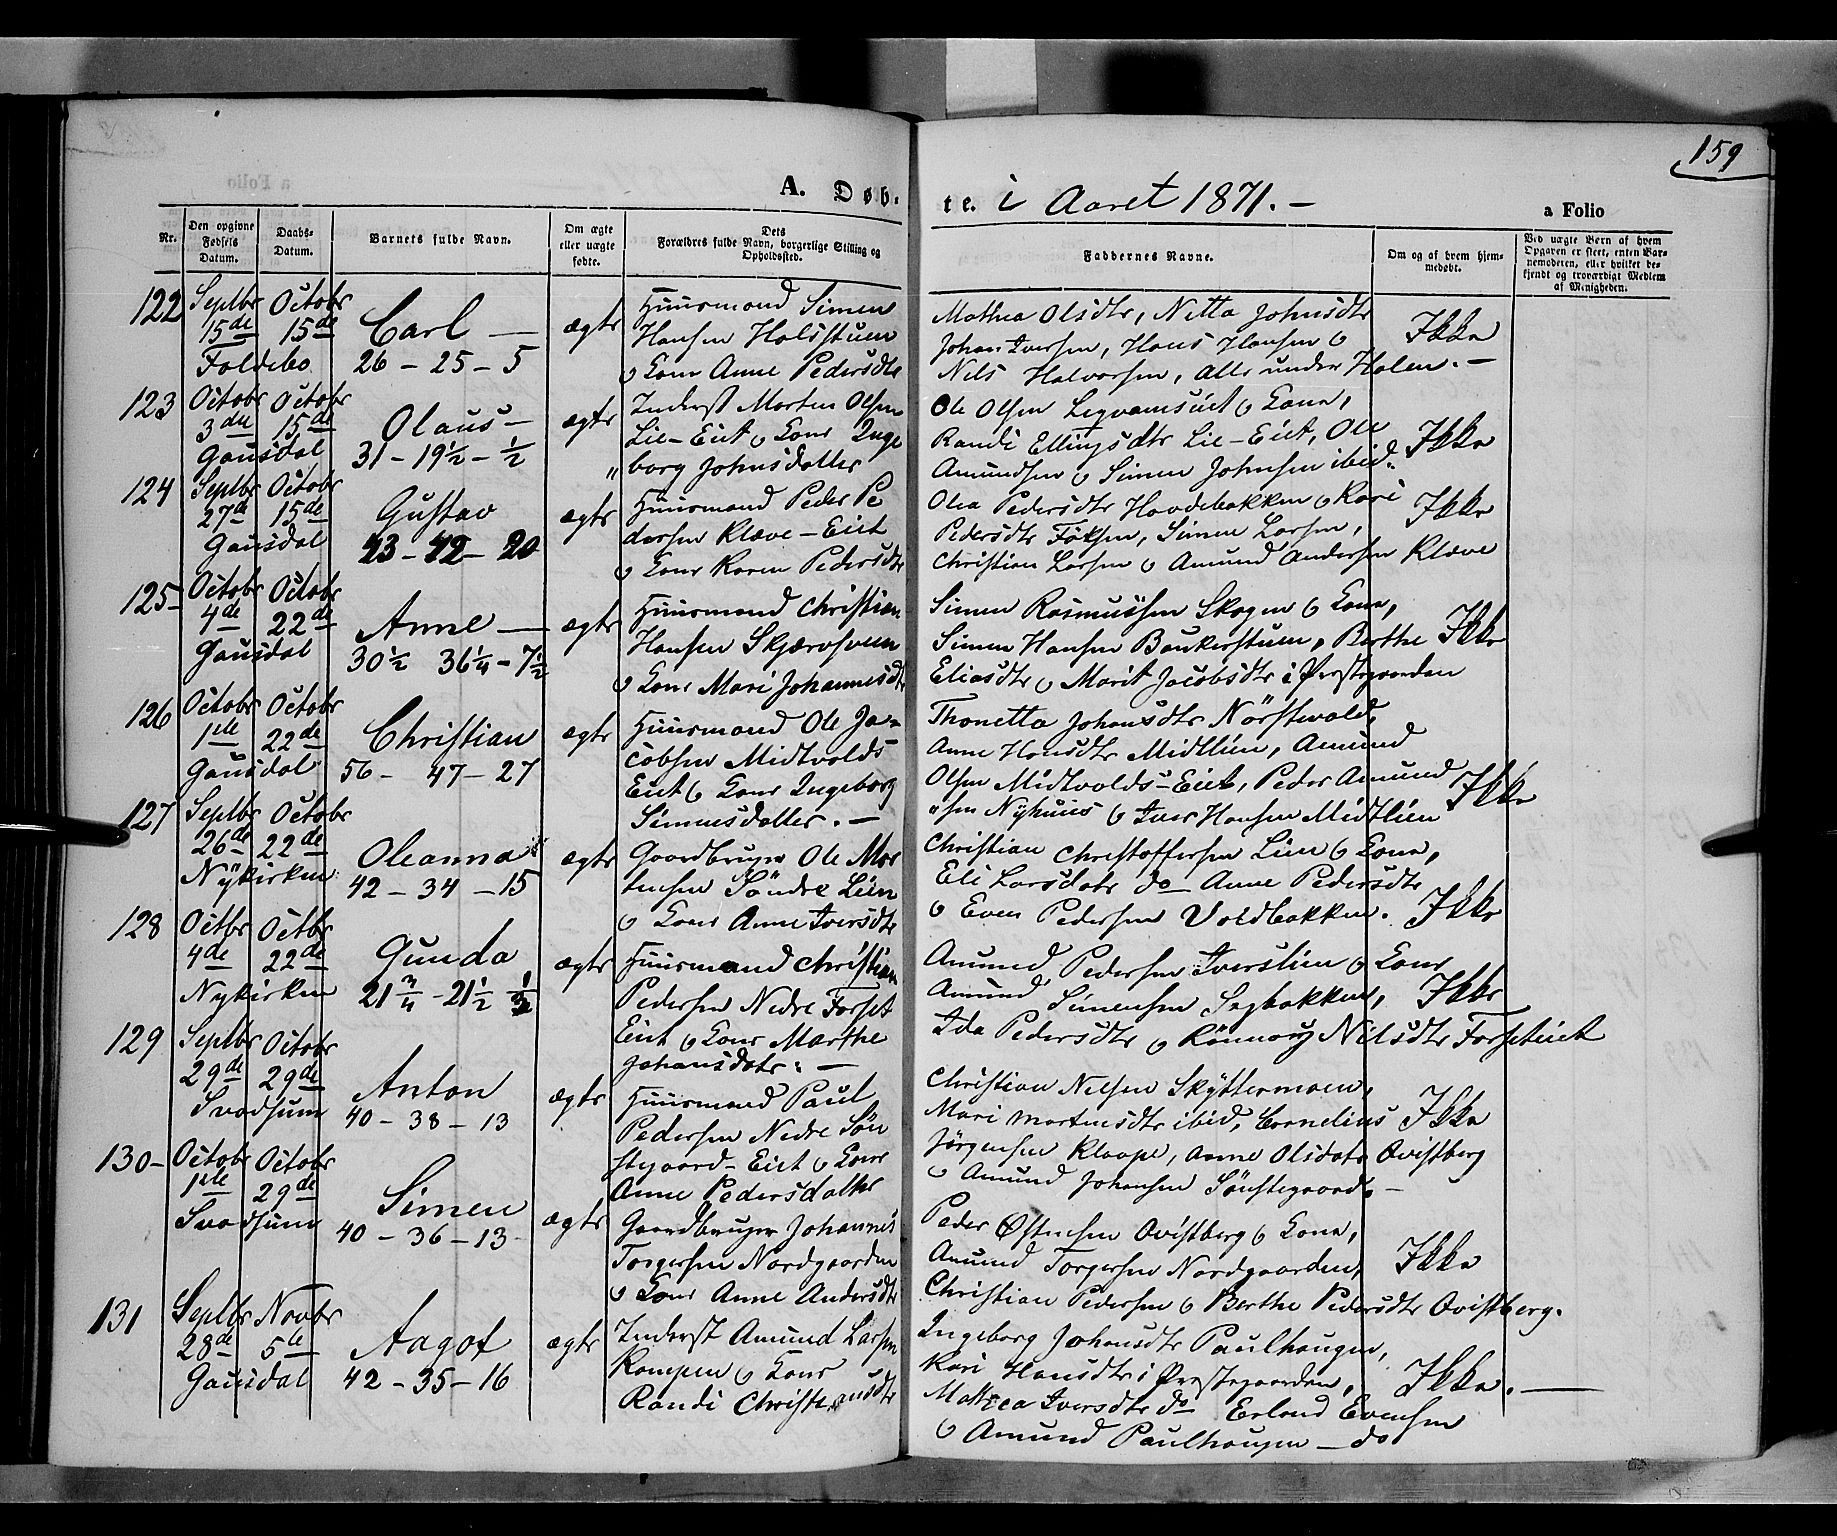 159
A. Døb-
te. i Aaret 1871. –
a Folio
Nr.
Den opgivne Fødsels Datum.
Daabs-Datum.
Barnets fulde Navn.
Om ægte eller uægte fødte.
Dets Forældres fulde Navn, borgerlige Stilling og Opholdssted.
Faddernes Navne.
Om og af hvem hjemmedøbt.
Ved uægte Børn af hvem Opgaven er skeet, enten Barnemoderen, eller hvilket bekjendt og troværdigt Medlem af Menigheden.
122
Septbr Octobr
15de 15de
Foldebo
Carl –
26 – 25 – 5
ægte
Huusmand Simen
Hansen Holsstuen
o Kone Anne Pedersdtr
Mathea Olsdtr, Netta Johnsdtr
Johan Iversen, Hans Hansen o
Nils Halvorsen, alle under Holen. –
Ikke
123
Octobr Octobr
3die 15de
Gausdal
Olaus –
31 – 19½ – ½
ægte
Inderst Morten Olsen
Lie-Eiet o Kone Inge
" borg Johnsdatter
Ole Olsen Legvamseiet o Kone,
Randi Ellingsdtr Lie-Eiet, Ole
Amundsen o Simen Johnsen ibid.
Ikke
124
Septbr Octobr
27de 15de
Gausdal
Gustav
43 – 42 – 20
ægte
Huusmand Peder Pe
dersen Kleve-Eiet
o Kone Karen Pedersdtr
Olea Pedersdtr Hovdebakken o Kari
Pedersdtr Foksen, Simen Larsen,
Christian Larsen o Amund Andersen Kleve
Ikke
125
Octobr Octobr
4de 22de
Gausdal
Anne –
30½ 36¼ – 7½
ægte
Huusmand Christian
Hansen Skjærvsveen
o Kone Mari Johannesdtr
Simen Rasmussen Skogen o Kone,
Simen Hansen Baukerstuen, Berthe
Eliasdtr o Marit Jacobsdtr i Præstegaarden
Ikke
126
Octobr Octobr
1ste 22de
Gausdal
Christian
56 – 47 – 27
ægte
Huusmand Ole Ja-
cobsen Midtvolds
Eiet o Kone Ingeborg
Simensdatter. –
Thonette Johansdtr Nörstevold,
Anne Hansdtr Midtlien, Amund
Olsen Midtvolds-Eiet, Peder Amund
"sen Nyhuus o Iver Hansen Midtlien
Ikke
127
Septbr Octobr
26de 22de
Nykirken
Oleanna
42 – 34 – 15
ægte
Gaardbruger Ole Mor
tensen Söndre Lien
o Kone Anne Iversdtr
Christian Christoffersen Lien o Kone,
Eli Larsdatr do Anne Pedersdtr
o Even Pedersen Voldbakken.
Ikke
128
Octbr Octbr
4de 22de
Nykirken
Gunda
21¾ – 21½ ½
ægte
Huusmand Christian
Pedersen Nedre Forset
Eiet o Kone Marthe
Johansdatr. –
Amund Pedersen Iverslien o Kone
Amund Simensen Segbakken,
Ida Pedersdtr o Rönnoug Nilsdtr Forseteiet
Ikke
129
Septbr Octobr
29de 29de
Svadsum
Anton
40 – 38 – 13
ægte
Huusmand Paul
Pedersen Nedre Sön
stegaard-Eiet o Kone
Anne Pedersdatter
Christian Nilsen Skyttermoen,
Mari Mortensdtr ibid, Cornelius
Jörgensen Klaape, Anne Olsdatr Qvistberg
o Amund Johansen Sönstegaard. –
Ikke
130 –
Octobr Octobr
1ste 29de
Svadsum
Simen
40 – 36 – 13
ægte
Gaardbruger Johannes
Torgersen Nordgaarden
o Kone Anne Andersdtr
Peder Østensen Qvistberg o Kone,
Amund Torgersen Nordgaarden,
Christian Pedersen o Berthe Pedersdtr Qvistberg.
Ikke
131
Septbr Novbr
28de 5te
Gausdal
Aagot
42 – 35 – 16
ægte
Inderst Amund Larsen
Kampen o Kone
Randi Christensdtr
Ingeborg Johansdtr Paulhaugen,
Kari Hansdtr i Præstegaarden,
Mathea Iversdtr do Erland Evensen
o Amund Paulhaugen – do
Ikke. –